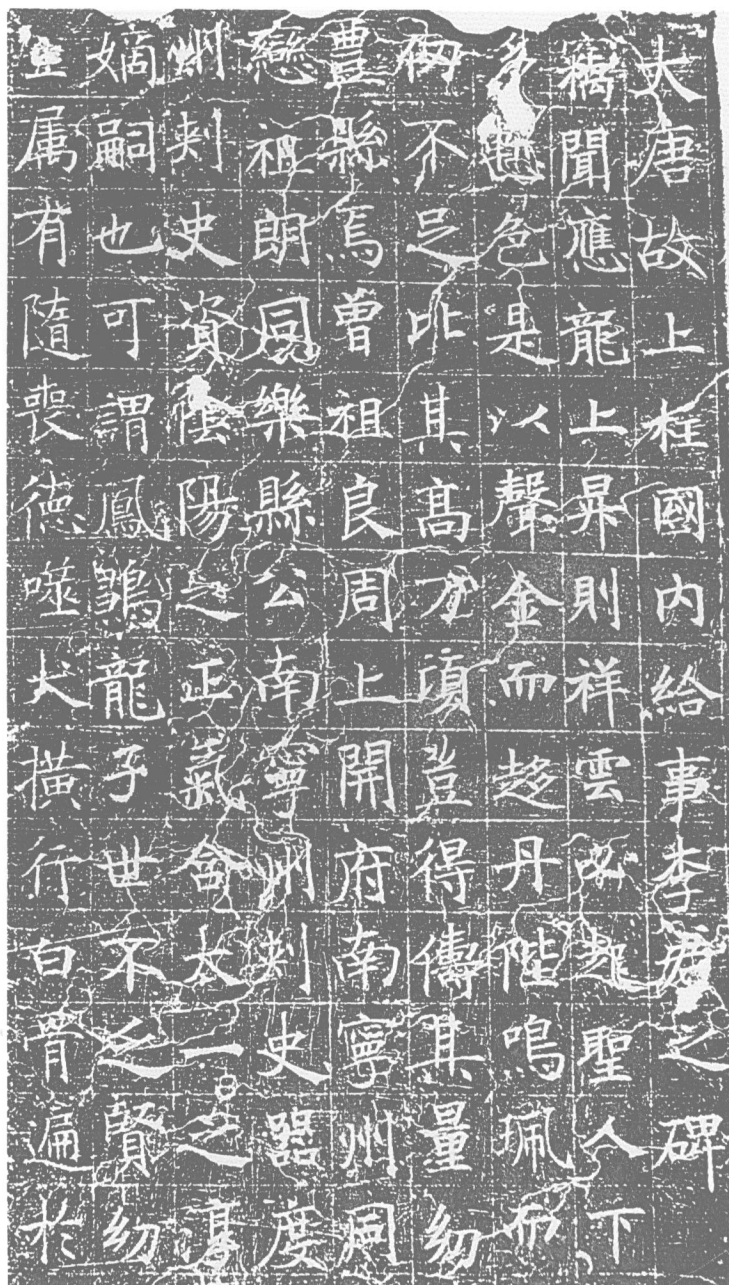 大唐故上柱國内給事李君之碑
竊聞應龍上昇則祥雲必起聖人下
多色是以聲金而趍丹陛鳴珮而
仞不足比其髙万頃豈得儔其量
豊縣焉曾祖良周上開府南寧州同
祖朗同樂縣公南寧州刾史器度
州刾史資陰陽之正氣含太一之淳
嫡嗣也可謂鳳鶵龍子世不乏賢幼
属有隨喪徳噬犬撗行白骨遍於